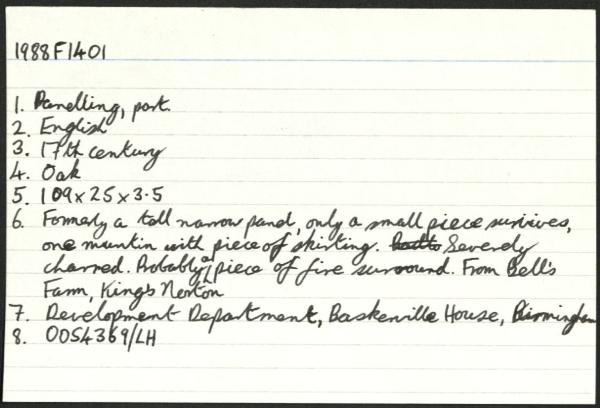 1988F1401
1. Panelling, part.
2. English
3. 17th century
4. Oak
5. 109x25x3.5
6. Formerly a tall narrow panel, only a small piece survives,
one muntin with piece of skirting. Severely
charred. Probably a piece of fire surround. From Bell's
Farm, Kings Norton
7. Development Department, Baskerville House, Birmingham
8. 0054369/LH